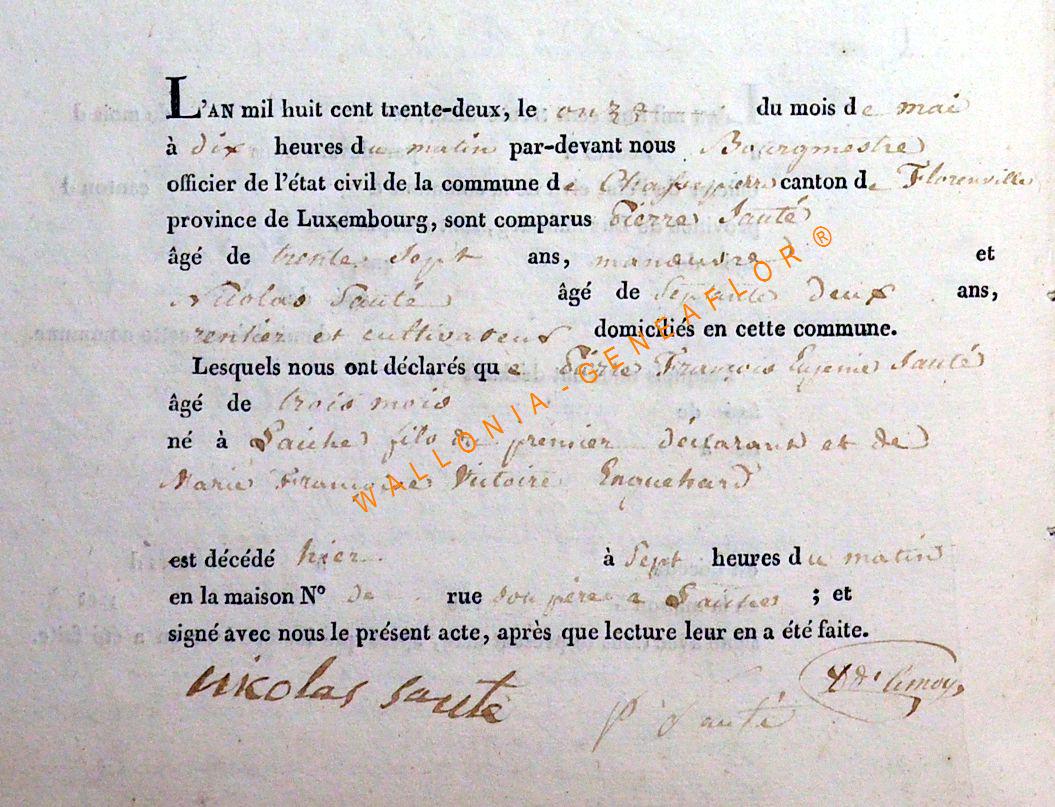 L'AN mil huit cent trente-deux, le onze du mois de mai
à dix heures du matin par-devant nous Bourgmestre
officier de l'état civil de la commune de Chassepierre canton de Florenville
province de Luxembourg, sont comparus Pierre Sauté
âgé de trente Sept ans, manœuvre et
Nicolas Sauté âgé de Septante deux ans,
rentier et cultivateur domiciliés en cette commune.
Lesquels nous ont déclarés que Pierre François Eugenie Sauté
âgé de trois mois
né à fils du premier déclarant et de
Marie Françoise Victoire Enguehard
est décédé hier à Sept heures du matin
en la maison N° de rue son père a ; et
signé avec nous le présent acte, après que lecture leur en a été faite.
nikolas saute
p Sauté
WALLONIA - GENEAFLOR ®